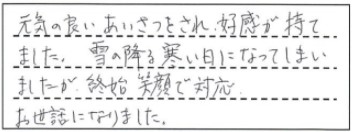 元気の良いあいさつをされ、好感が持て
ました。雪の降る寒い日になってしまい
ましたが、終始笑顔で対応
お世話になりました。